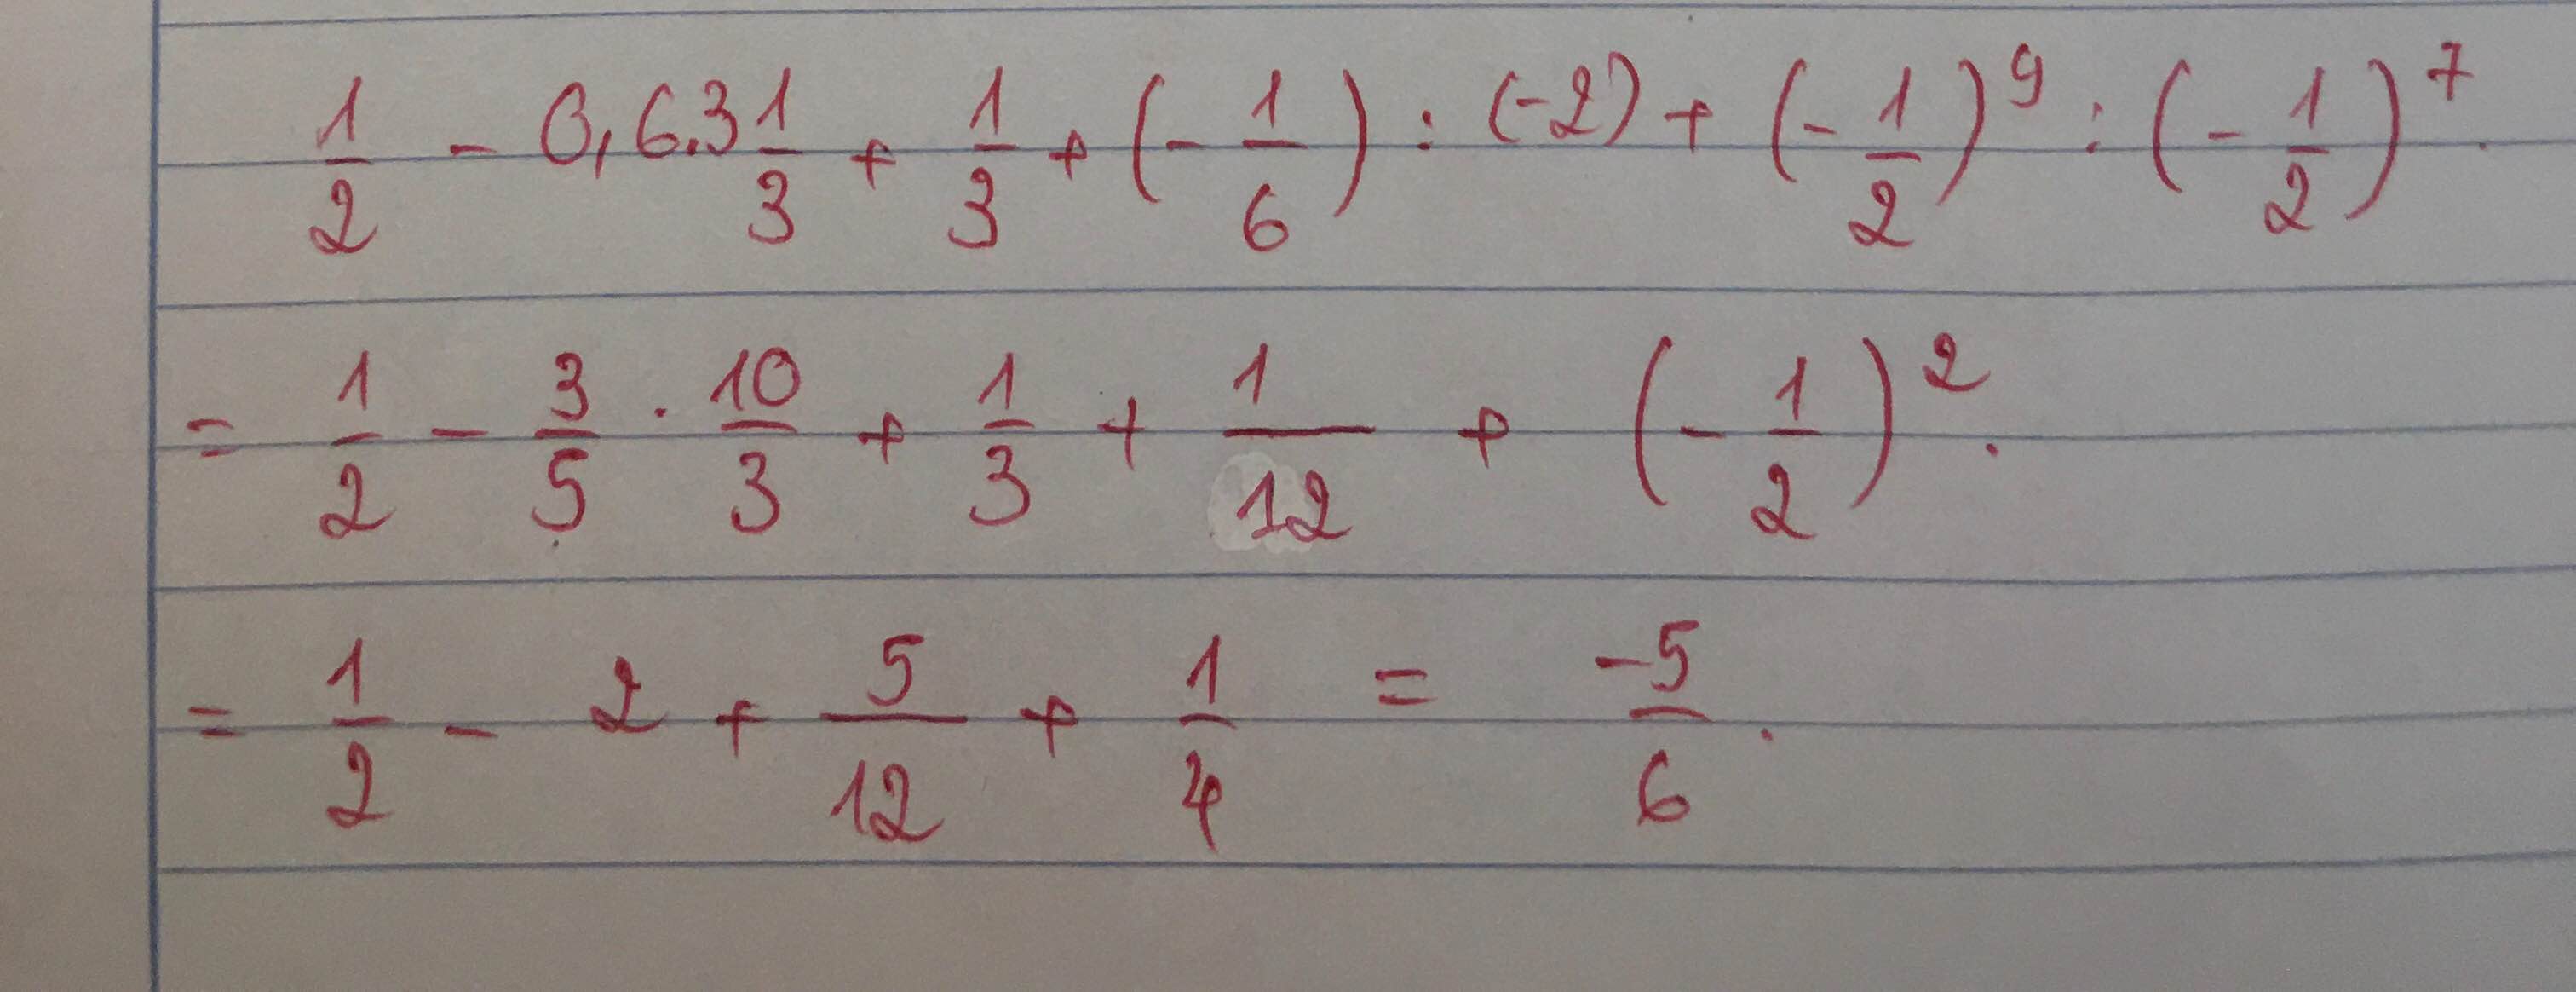 1/2 - 0,6.3 1/3 + 1/3 + (-1/6) : (-2) + (-1/2)^9 : (-1/2)^7.
= 1/2 - 3/5 . 10/3 + 1/3 + 1/12 + (-1/2)^2.
= 1/2 - 2 + 5/12 + 1/4 = -5/6.